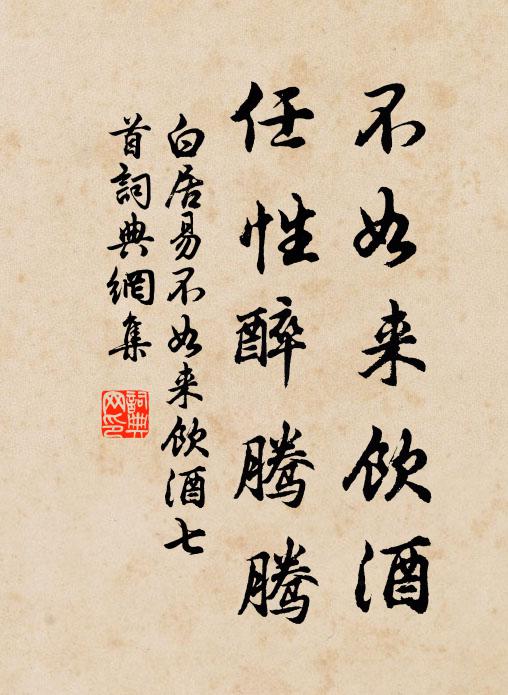 不如来饮酒
任性醉腾腾
白居易不如来饮酒七
首詞典網集
詞典
网印